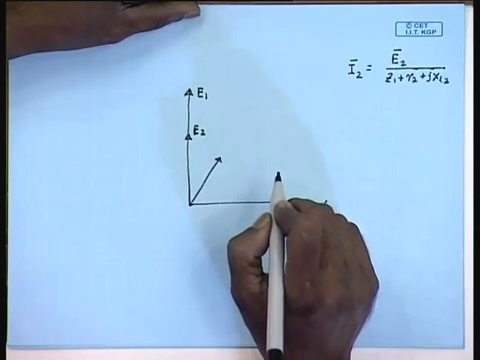 © CET
I.I.T. KGP
Ī₂ = Ē₂ / z₁ + r₂ + jx₁₂
E₁
E₂